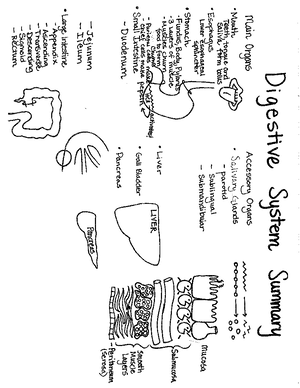 Digestive System Summary
Main Organs
• Mouth
Teeth, tongue and
Saliva form bolus
• Esophagus
Lower Esophageal
sphincter
• Stomach
- Fundus, Body, Pylorus
- 3 layers of muscle
- Muscles churn
food to form
• Small Intestine
- Duodenum
- Jejunum
- Ileum
• Large Intestine
- Appendix
- Ascending
- Transverse
- Descending
- Sigmoid
- Rectum
Accessory Organs
• Salivary Glands
- parotid
- Sublingual
- Submandibular
• Liver
• Gall Bladder
• Pancreas
LIVER
Pancreas
Mucosa
Submucosa
Smooth
Muscle
Layers
Peritoneum
(Serosa)